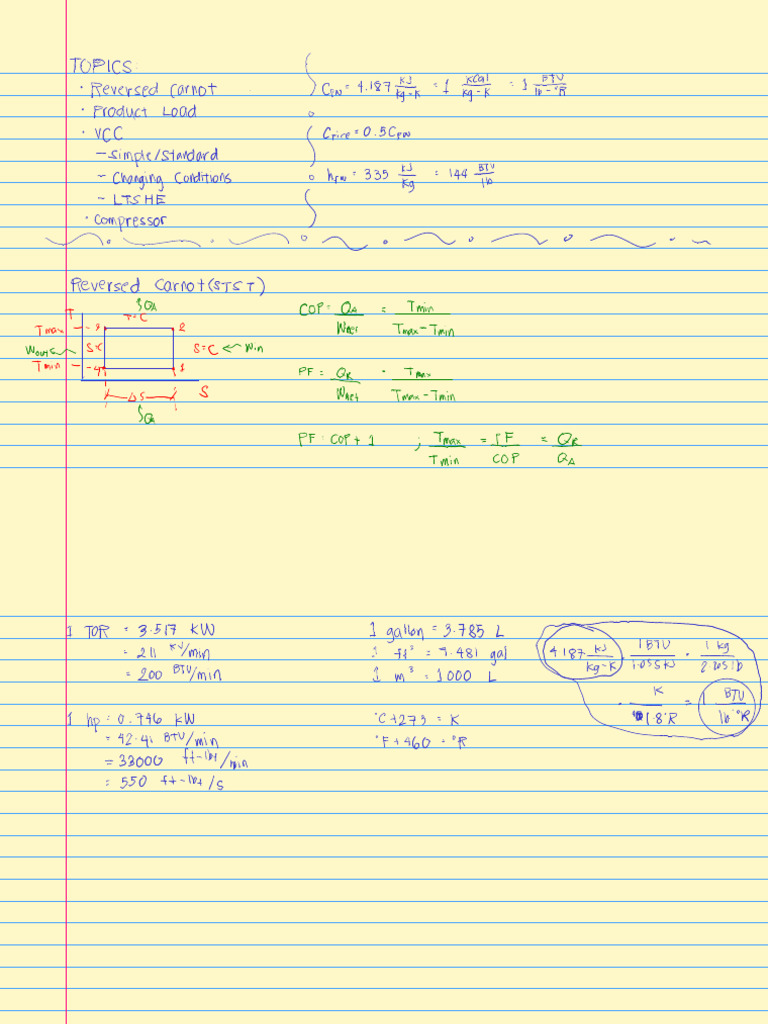 TOPICS:
· Reversed Carnot
· Product Load
· VCC
- Simple/Standard
- Changing Conditions
- LTSHE
· Compressor
Cpw = 4.187 KJ/kg-K = 1 KCal/kg-K = 1 BTU/lb-°R
Cpice = 0.5Cpw
= 335 KJ/Kg = 144 BTU/lb
Reversed Carnot (STST)
QR
T=C
T
Tmax 3 2
Wout S=C S=C ← Win
Tmin 4 1
ΔS S
QA
COP = QA/WNet = Tmin/Tmax-Tmin
PF = QR/WNet = Tmax/Tmax-Tmin
PF = COP + 1 ; Tmax/Tmin = PF/COP = QR/QA
1 TOR = 3.517 KW
= 211 KJ/min
= 200 BTU/min
1 hp = 0.746 KW
= 42.41 BTU/min
= 33000 ft-lbf/min
= 550 ft-lbf/s
1 gallon = 3.785 L
1 ft³ = 7.481 gal
1 m³ = 1000 L
°C+273 = K
°F+460 = °R
4.187 KJ/kg-K · 1 BTU/1.055KJ · 1 kg/2.205lb
· K/1.8°R = 1 BTU/lb°R